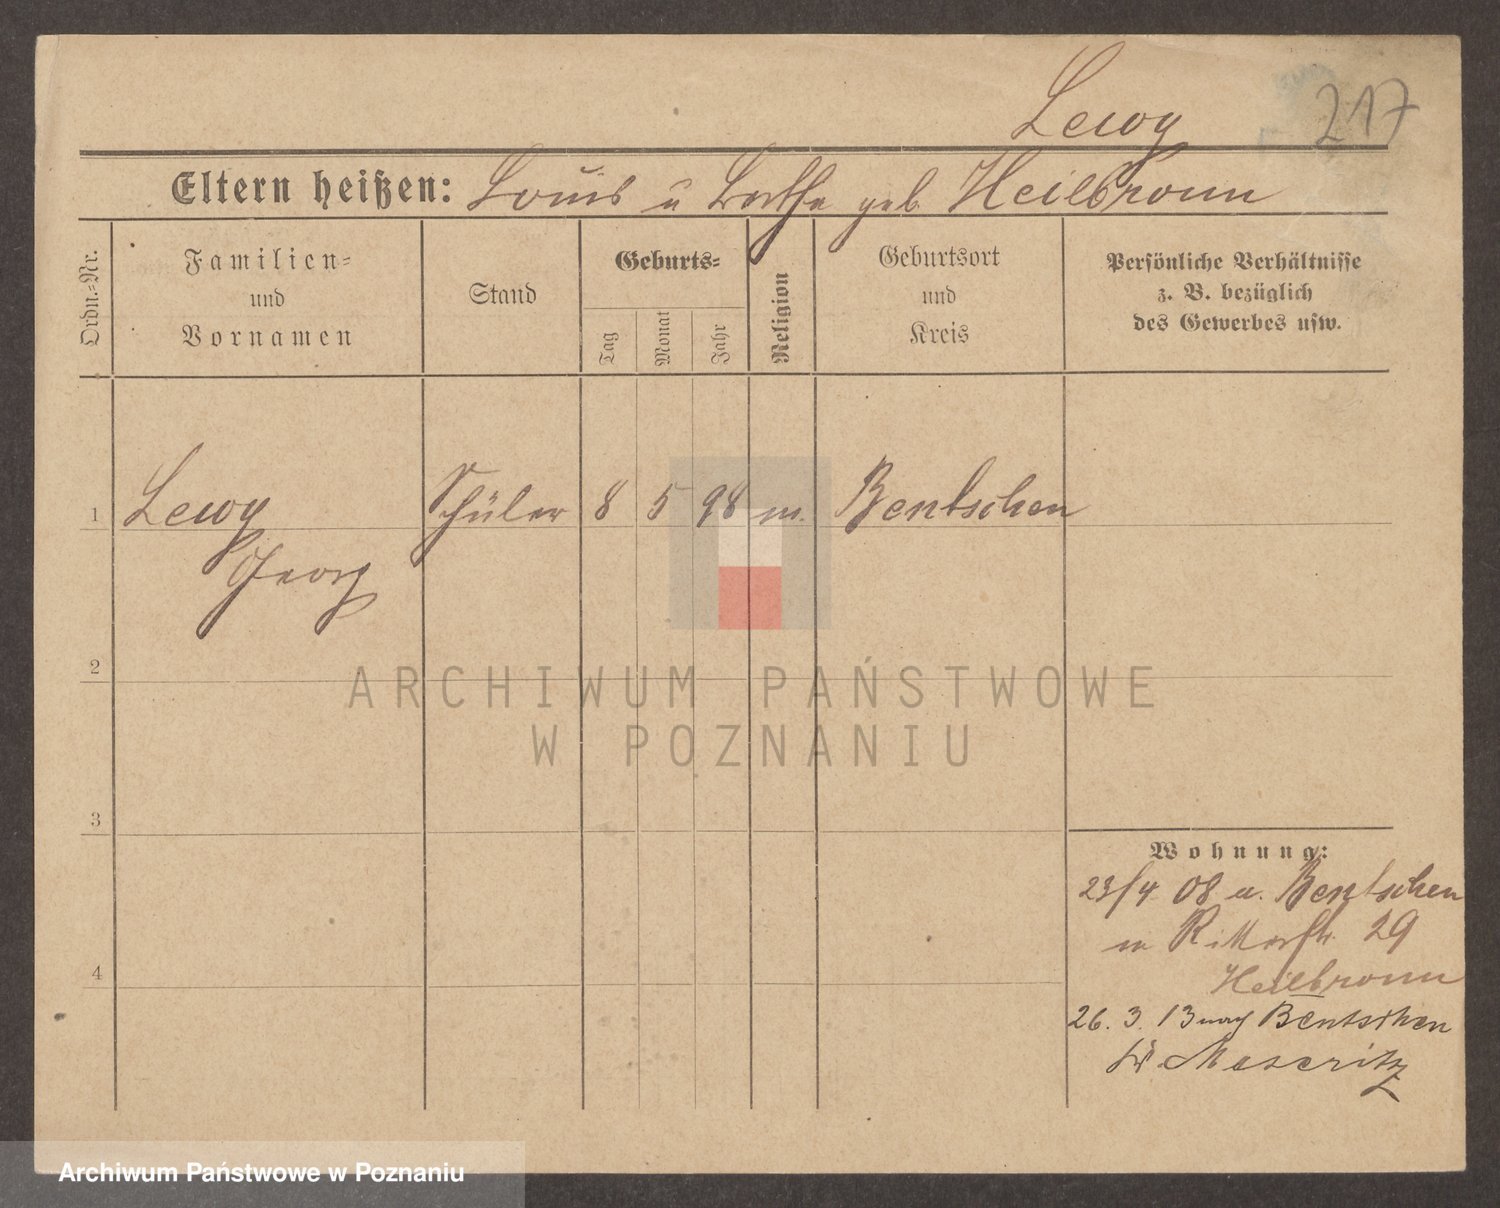 Lewy 217
Eltern heißen: Louis u Berthe geb Heilbronn
Ordn.-Nr.
Familien-
und
Vornamen
Stand
Geburts-
Tag
Monat
Jahr
Religion
Geburtsort
und
Kreis
Persönliche Verhältnisse
z. B. bezüglich
des Gewerbes usw.
1 Lewy Schüler 8 5 98 m. Bentschen
Georg
2
ARCHIWUM PAŃSTWOWE
W POZNANIU
3
Wohnung:
23/4 08 a. Bentschen
Ritterstr. 29
Heilbronn
4
26. 3. 13 nach Bentschen
Kr. Meseritz
Archiwum Państwowe w Poznaniu